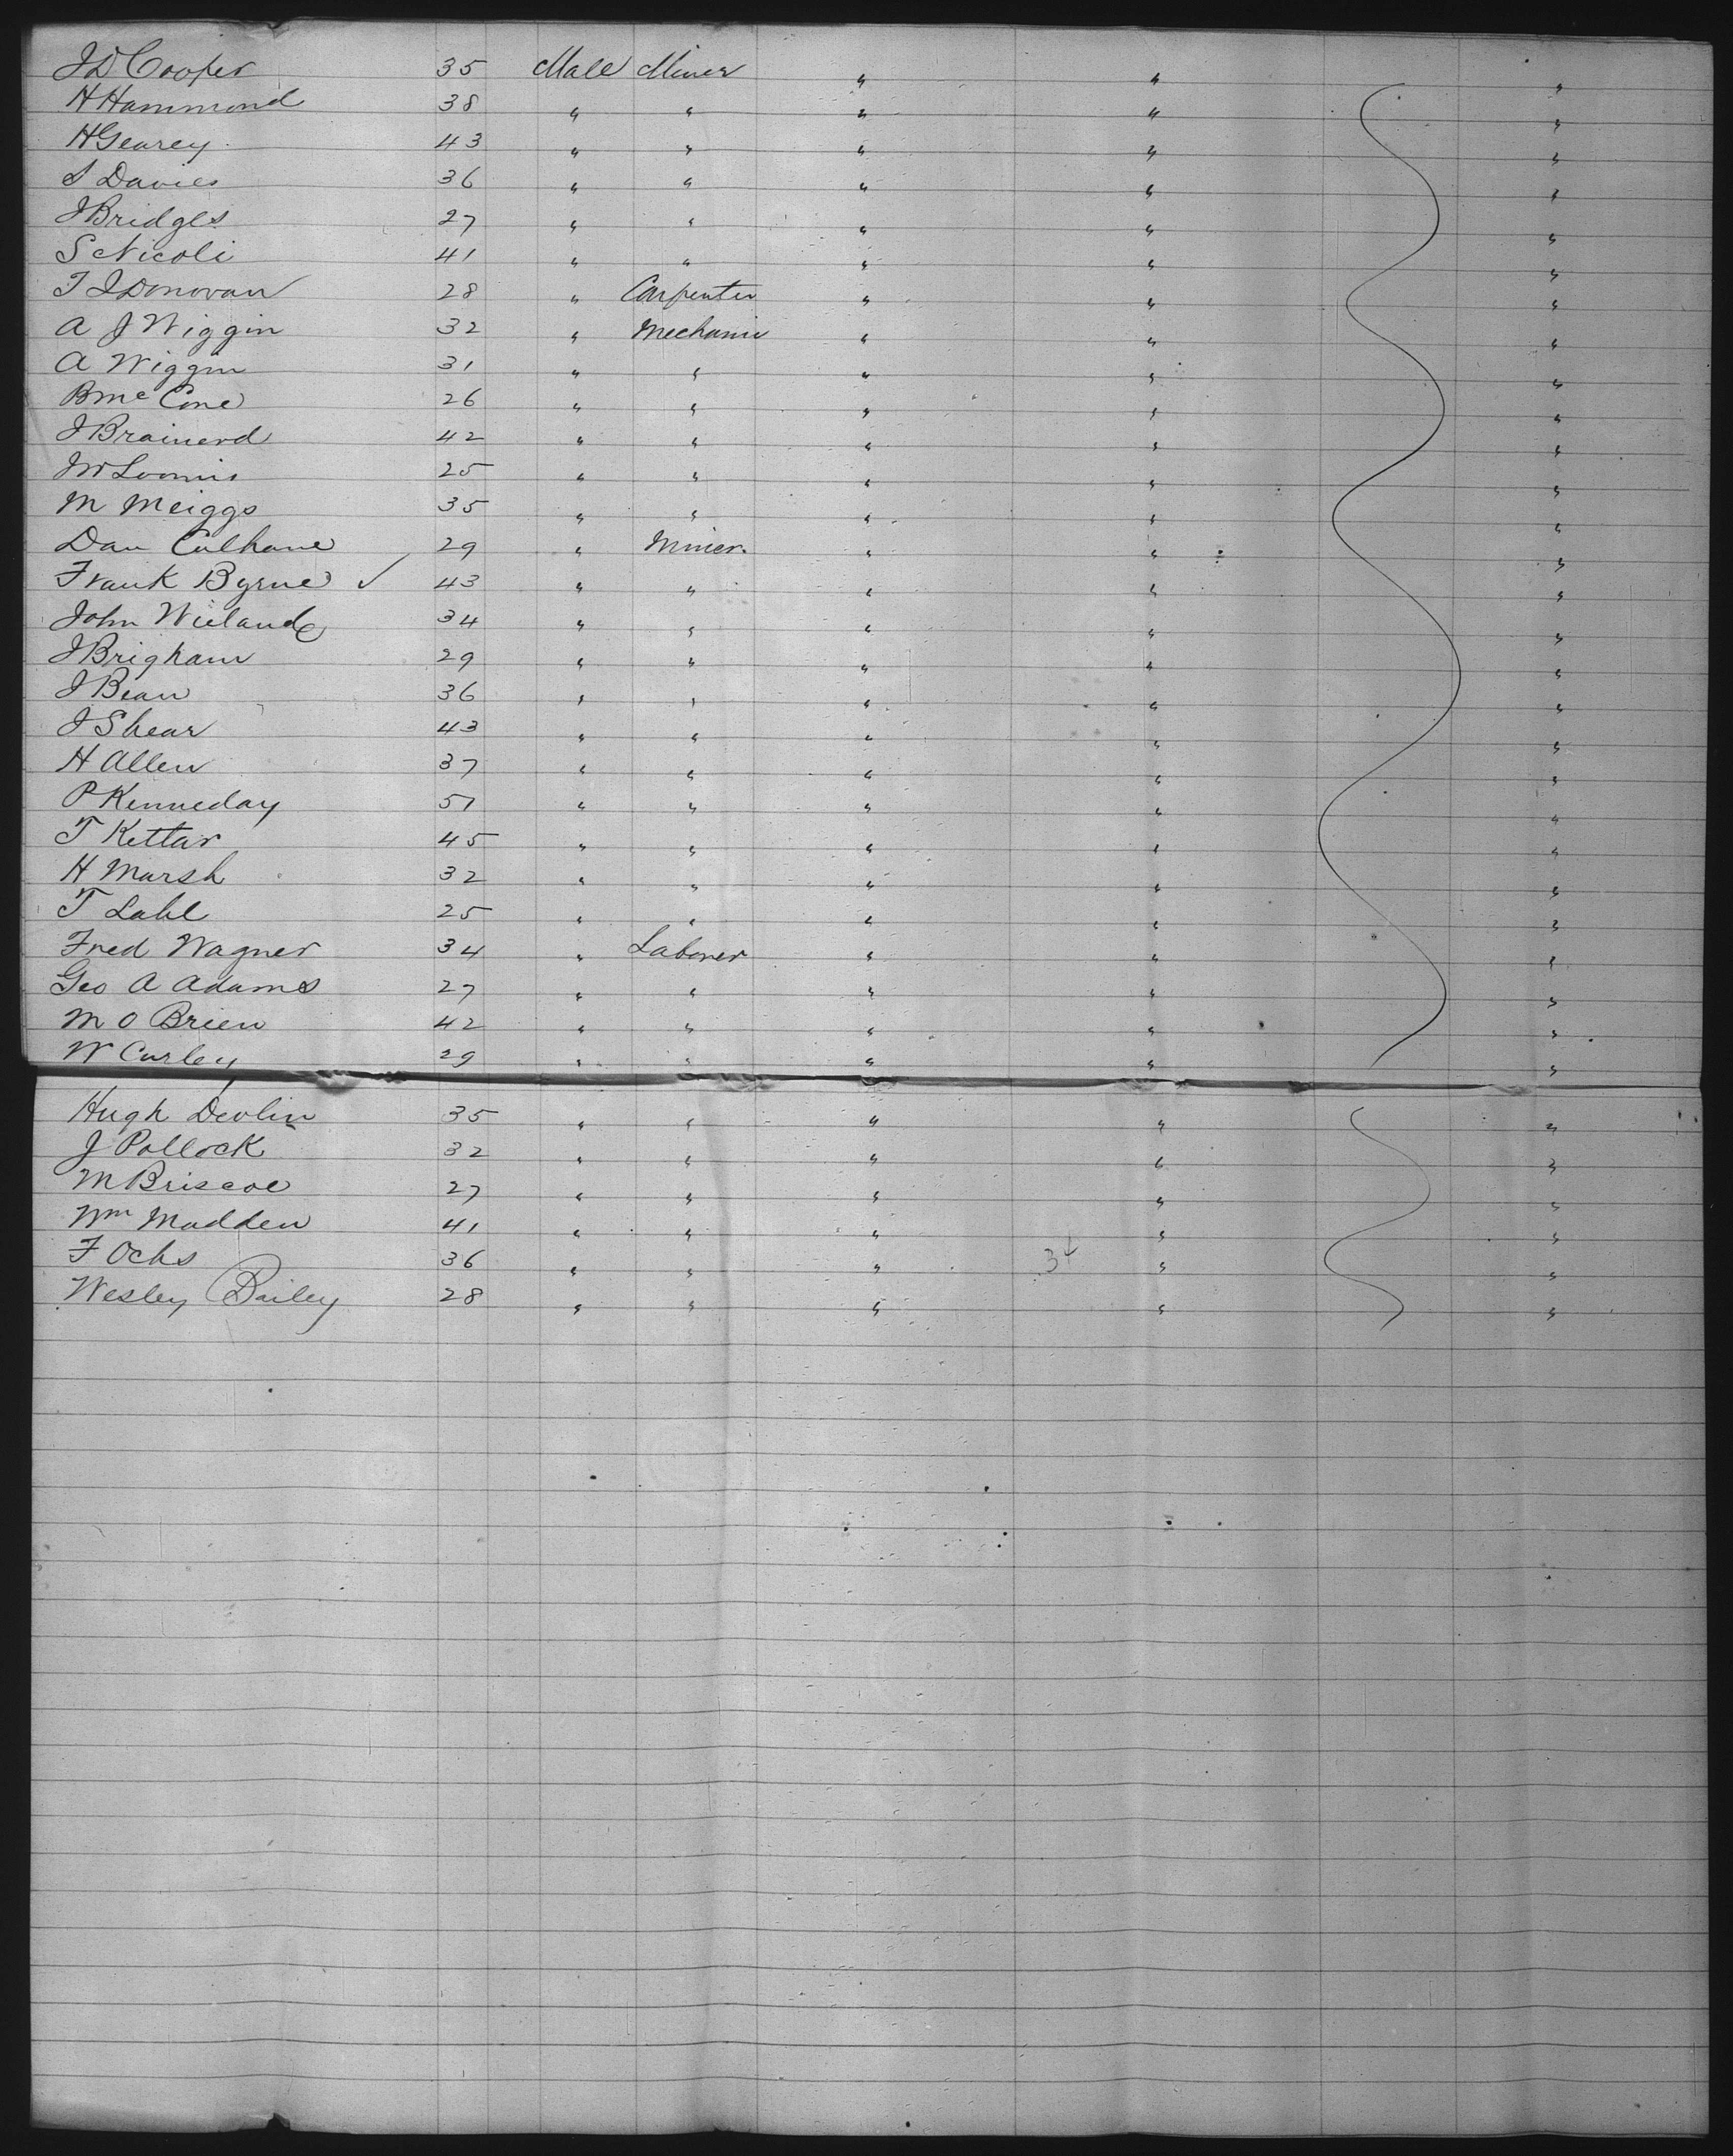 J D Cooper 35 Male Miner " " "
H Hammond 38 " " " " "
H Gearey 43 " " " " "
S Davies 36 " " " " "
J Bridges 27 " " " " "
S Nicoli 41 " " " " "
T J Donovan 28 " Carpenter " " "
A J Wiggin 32 " Mechanic " " "
A Wiggin 31 " " " " "
B McCone 26 " " " " "
J Brainerd 42 " " " " "
J W Loomis 25 " " " " "
M Meiggs 35 " " " " "
Dan Culhane 29 " Miner. " " "
Frank Byrne ✓ 43 " " " " "
John Wieland 34 " " " " "
J Brigham 29 " " " " "
J Bean 36 " " " " "
J Shear 43 " " " " "
H Allen 37 " " " " "
P Kenneday 51 " " " " "
T Kettar 45 " " " " "
H Marsh 32 " " " " "
T Lahl 25 " " " " "
Fred Wagner 34 " Laborer " " "
Geo A Adams 27 " " " " "
M O Brien 42 " " " " "
W Curley 29 " " " " "
Hugh Devlin 35 " " " " "
J Pollock 32 " " " " "
M Briscoe 27 " " " " "
Wm Madden 41 " " " " "
F Ochs 36 " " " 34 " "
Wesley Bailey 28 " " " " "